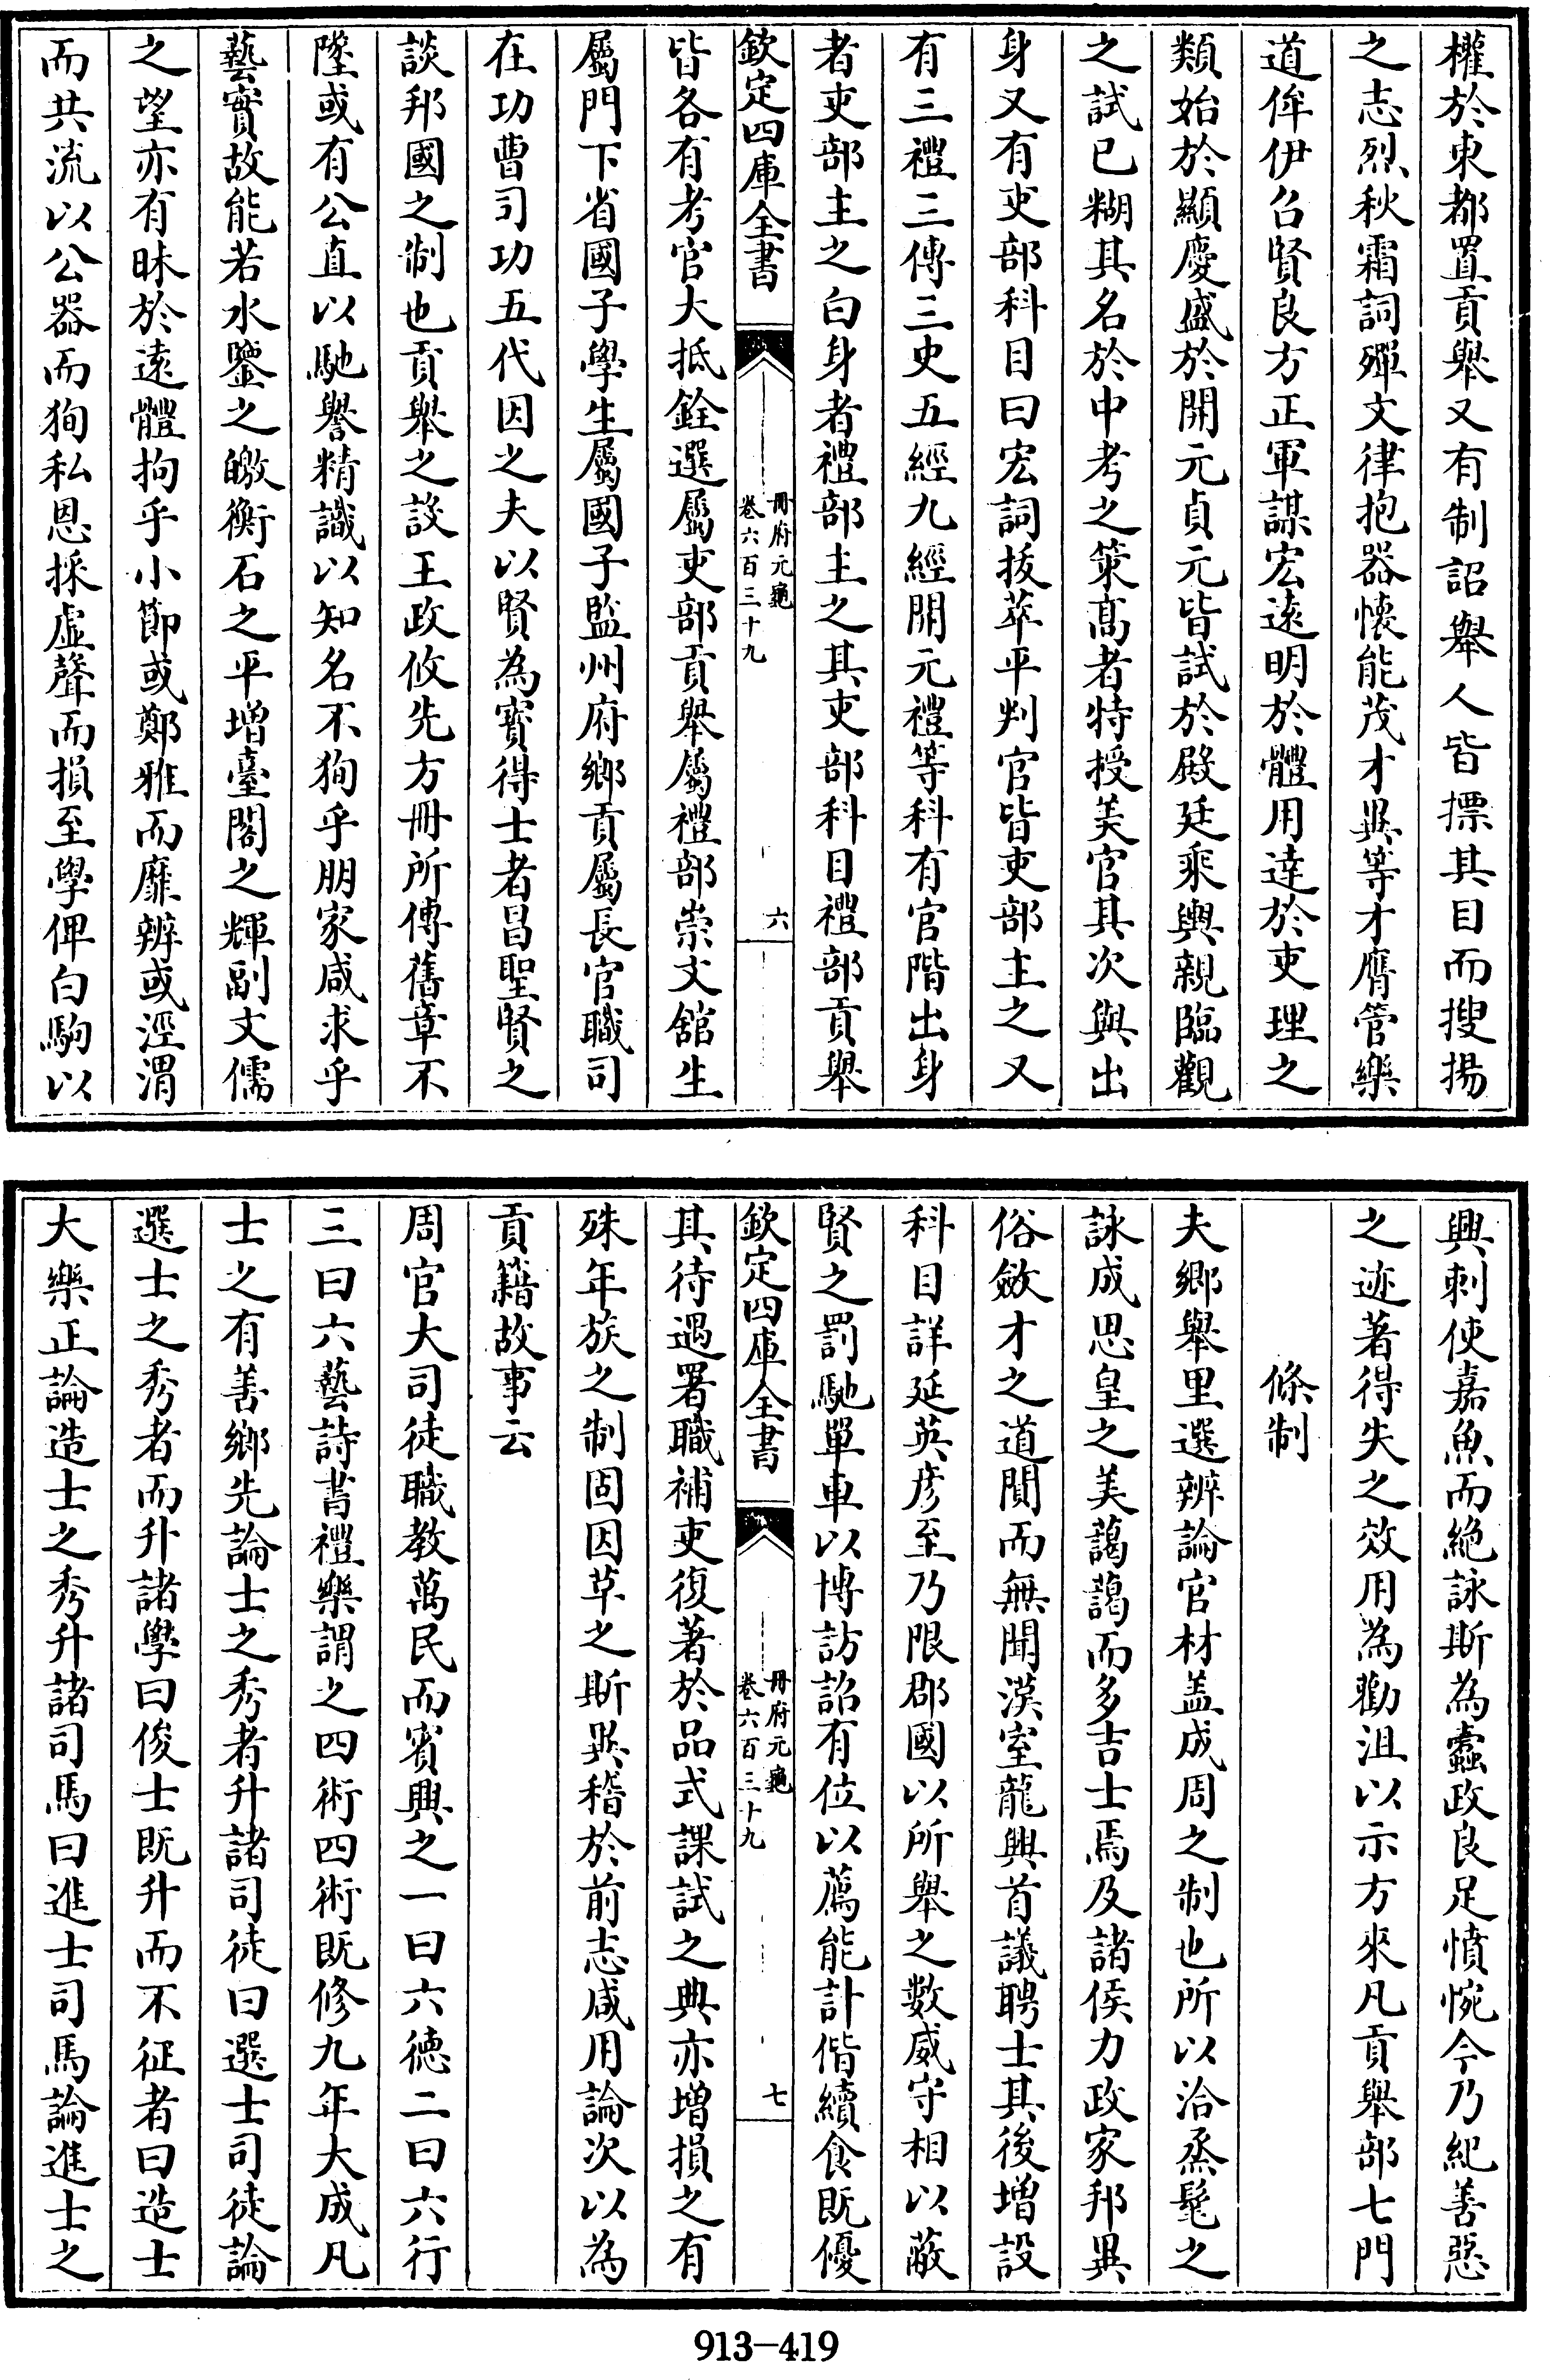 權於東都置貢舉又有制詔舉人皆摽其目而搜揚
之志烈秋霜詞殫文律抱器懷能茂才異等才膺管樂
道侔伊呂賢良方正軍謀宏遠明於體用達於吏理之
類始於顯慶盛於開元貞元皆試於殿廷乘輿親臨觀
之試已糊其名於中考之策髙者特授美官其次與出
身又有吏部科目曰宏詞拔萃平判官皆吏部主之又
有三禮三傳三史五經九經開元禮等科有官階出身
者吏部主之白身者禮部主之其吏部科目禮部貢舉
欽定四庫全書
冊府元龜
卷六百三十九
六
皆各有考官大抵銓選屬吏部貢舉屬禮部崇文館生
屬門下省國子學生屬國子監州府鄉貢屬長官職司
在功曹司功五代因之夫以賢為寳得士者昌聖賢之
談邦國之制也貢舉之設王政攸先方冊所傳舊章不
墜或有公直以馳譽精識以知名不狥乎朋家咸求乎
藝實故能若水鑒之皦衡石之平增臺閣之輝副文儒
之望亦有昧於遠體拘乎小節或鄭雅而靡辨或涇渭
而共流以公器而狥私恩採虚聲而損至學俾白駒以
興刺使嘉魚而絶詠斯為蠧政良足憤惋今乃紀善惡
之迹著得失之效用為勸沮以示方來凡貢舉部七門
條制
夫鄉舉里選辨論官材盖成周之制也所以洽烝髦之
詠成思皇之美藹藹而多吉士焉及諸侯力政家邦異
俗斂才之道闃而無聞漢室龍興首議聘士其後增設
科目詳延英彦至乃限郡國以所舉之數威守相以蔽
賢之罰馳單車以博訪詔有位以薦能計偕續食既優
欽定四庫全書
冊府元龜
卷六百三十九
七
其待遇署職補吏復著於品式課試之典亦增損之有
殊年族之制固因草之斯異稽於前志咸用論次以為
貢籍故事云
周官大司徒職教萬民而賓興之一曰六徳二曰六行
三曰六藝詩書禮樂謂之四術四術既修九年大成凡
士之有善鄉先論士之秀者升諸司徒曰選士司徒論
選士之秀者而升諸學曰俊士既升而不征者曰造士
大樂正論造士之秀升諸司馬曰進士司馬論進士之
913-419